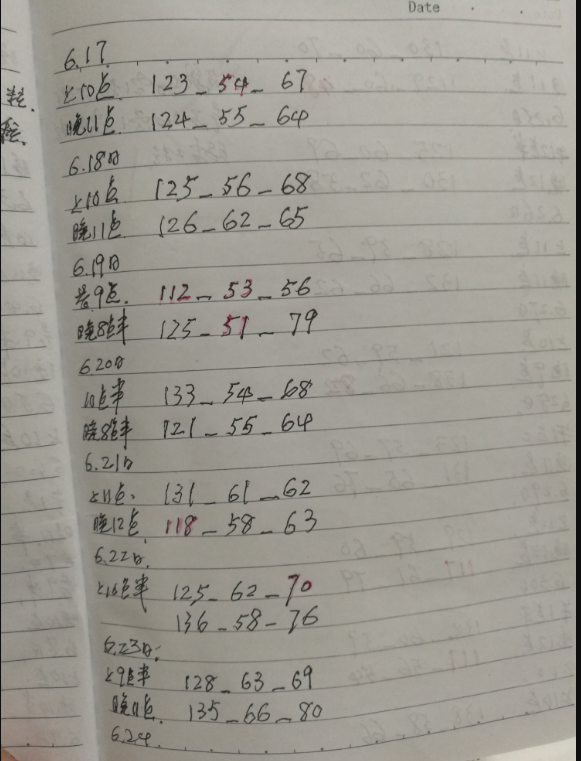 Date
6.17
上10点 123-54-67
晚11点 124-55-64
6.18日
上10点 125-56-68
晚11点 126-62-65
6.19日
早9点. 112-53-56
晚8点半 125-51-79
6.20日
10点半 133-54-68
晚8点半 121-55-64
6.21日
上11点. 131-61-62
晚12点 118-58-63
6.22日.
上10点半 125-62-70
136-58-76
6.23日.
上9点半 128-63-69
晚11点. 135-66-80
6.24.